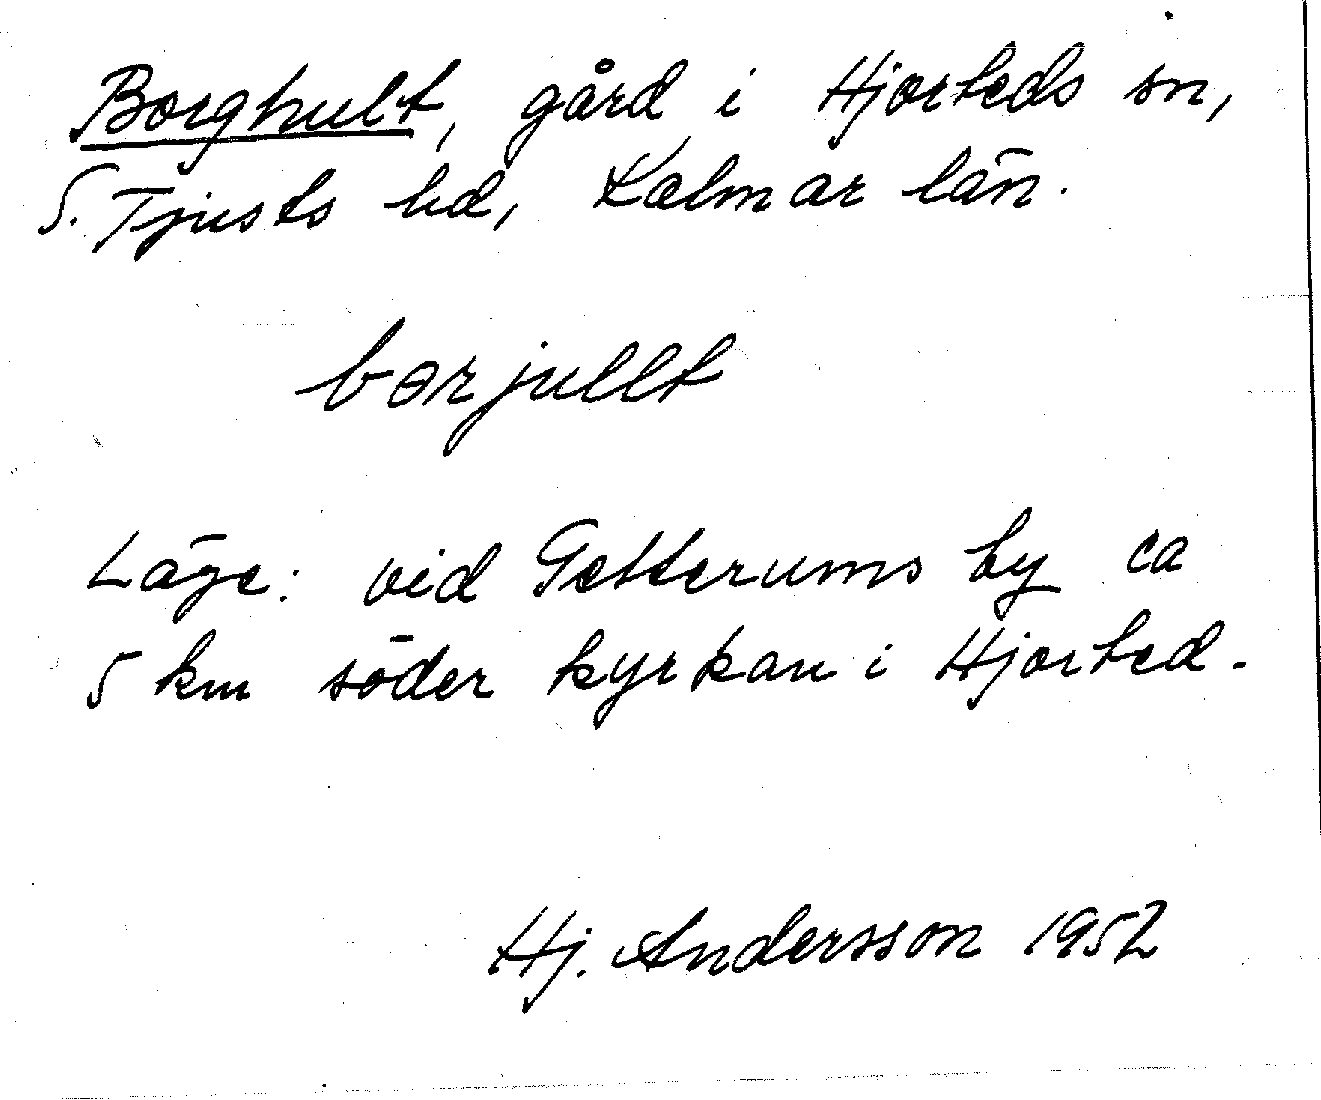 Borghult, gård i Hjorteds sn,
S. Tjusts hd, Kalmar län.
bɵrjullt
Läge: vid Getterums by ca
5 km söder kyrkan i Hjorted.
Hj. Andersson 1952